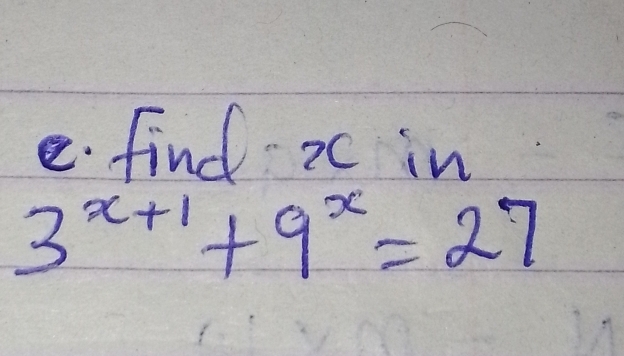 e. find x in
3^{x+1} + 9^x = 27